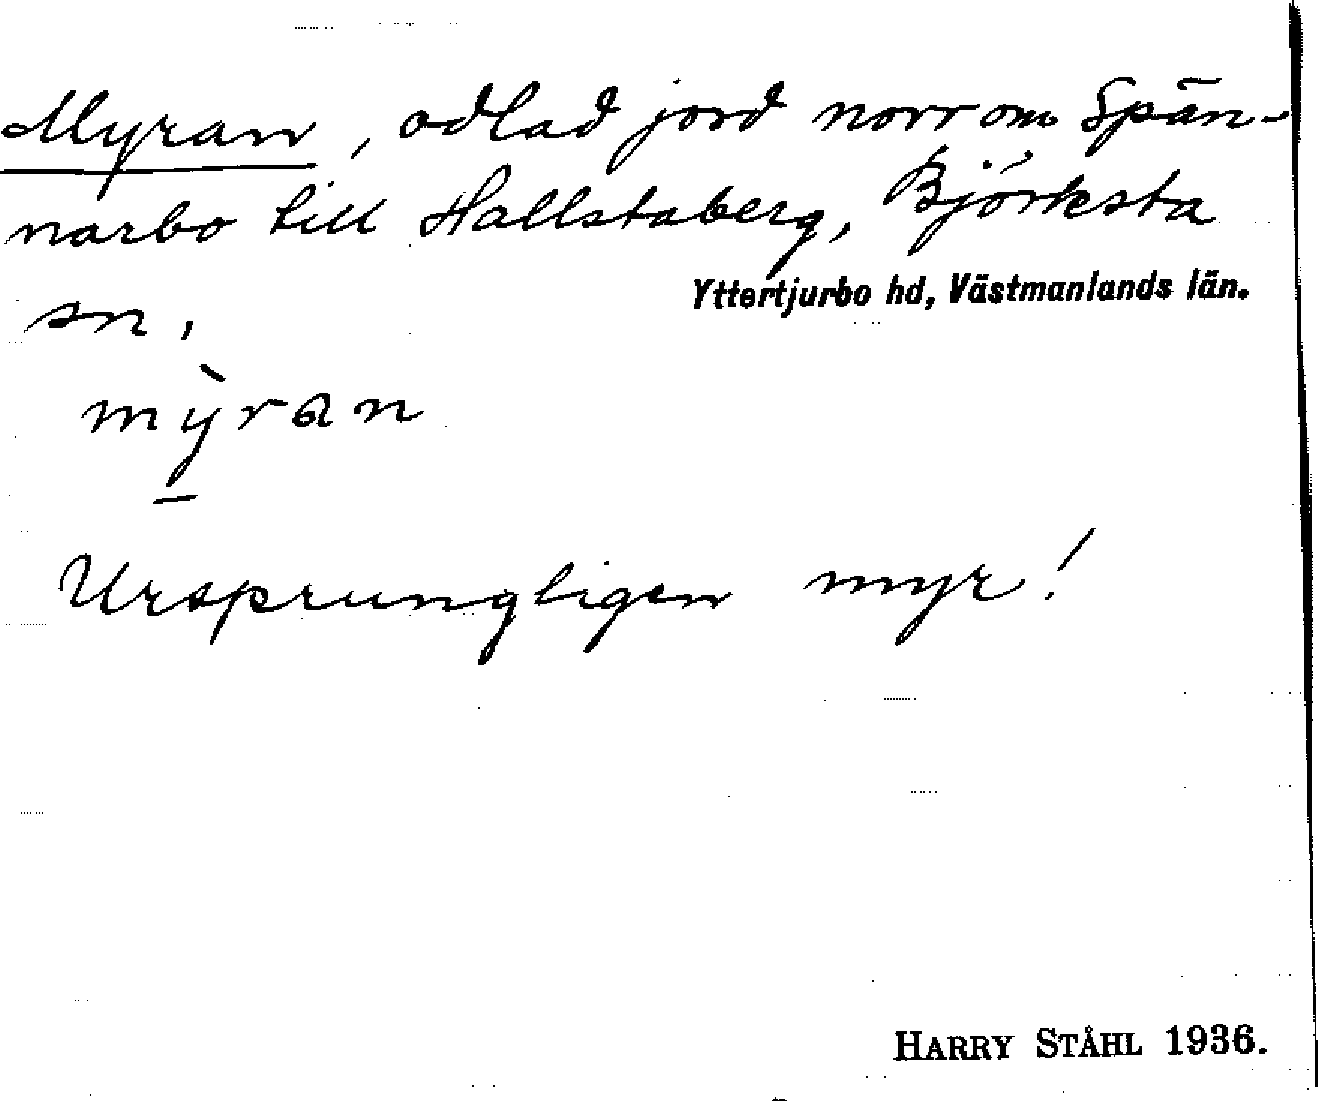 Myran, odlad jord norr om Spän-
narbo till Hallstaberg, Björksta
Yttertjurbo hd, Västmanlands län.
sn,
mỳran
Ursprungligen myr!
HARRY STÅHL 1936.